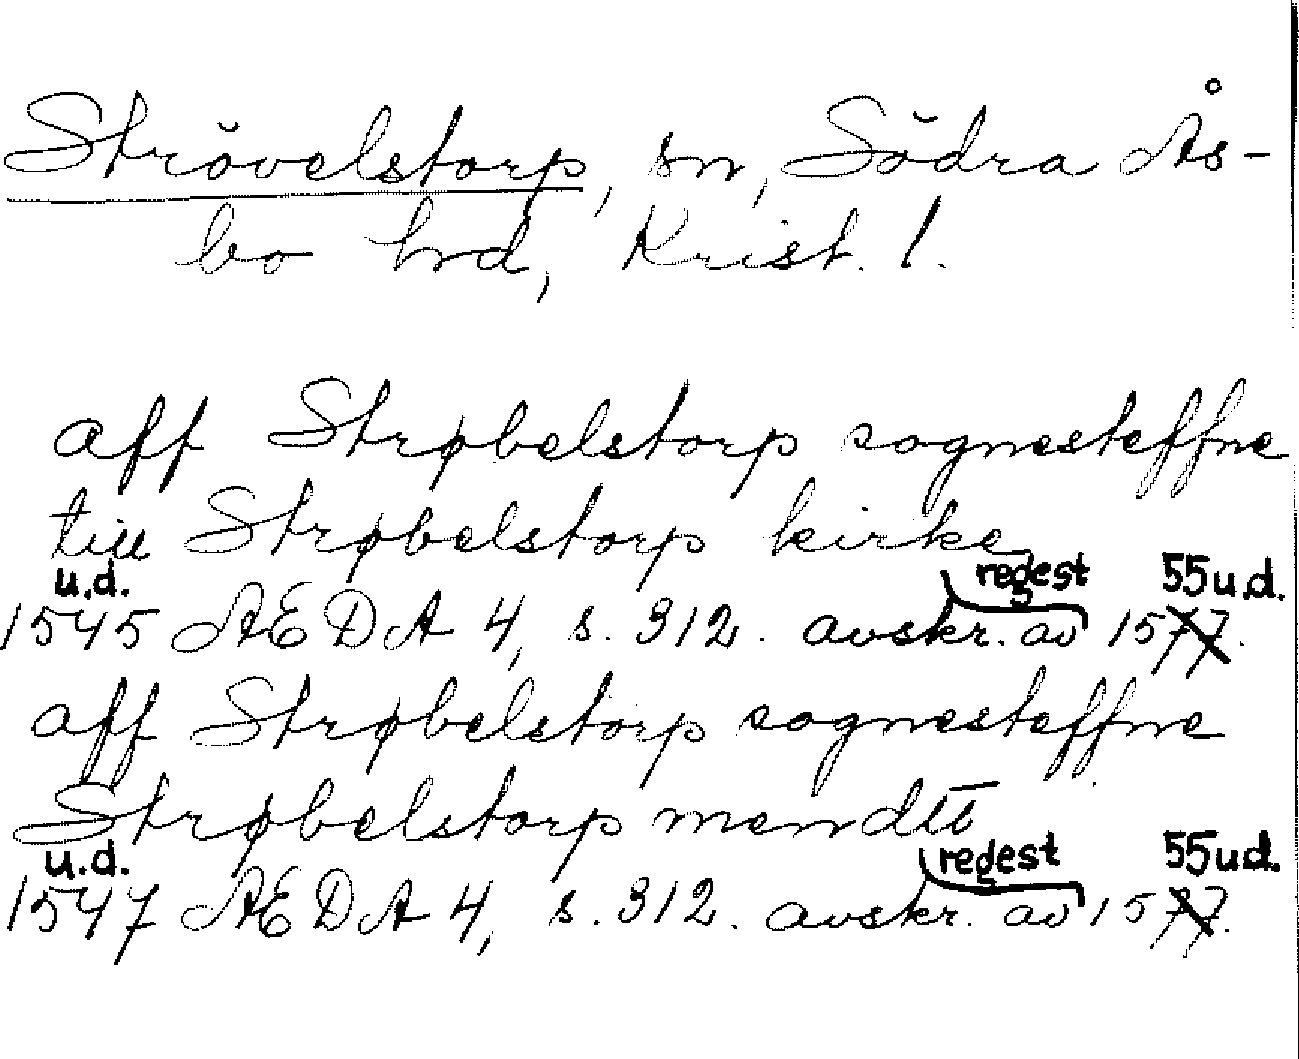 Strövelstorp, sn, Södra Ås-
bo hrd, Krist. l.
aff Strøbelstorp sognesteffne
till Strøbelstorp kirke
u.d. regest 55 u.d.
1545 ÆDA 4, s. 312. avskr. av 1577.
aff Strøbelstorp sognesteffne
Strøbelstorp mendt
u.d. regest 55 u.d.
1547 ÆDA 4, s. 312. avskr. av 1577.